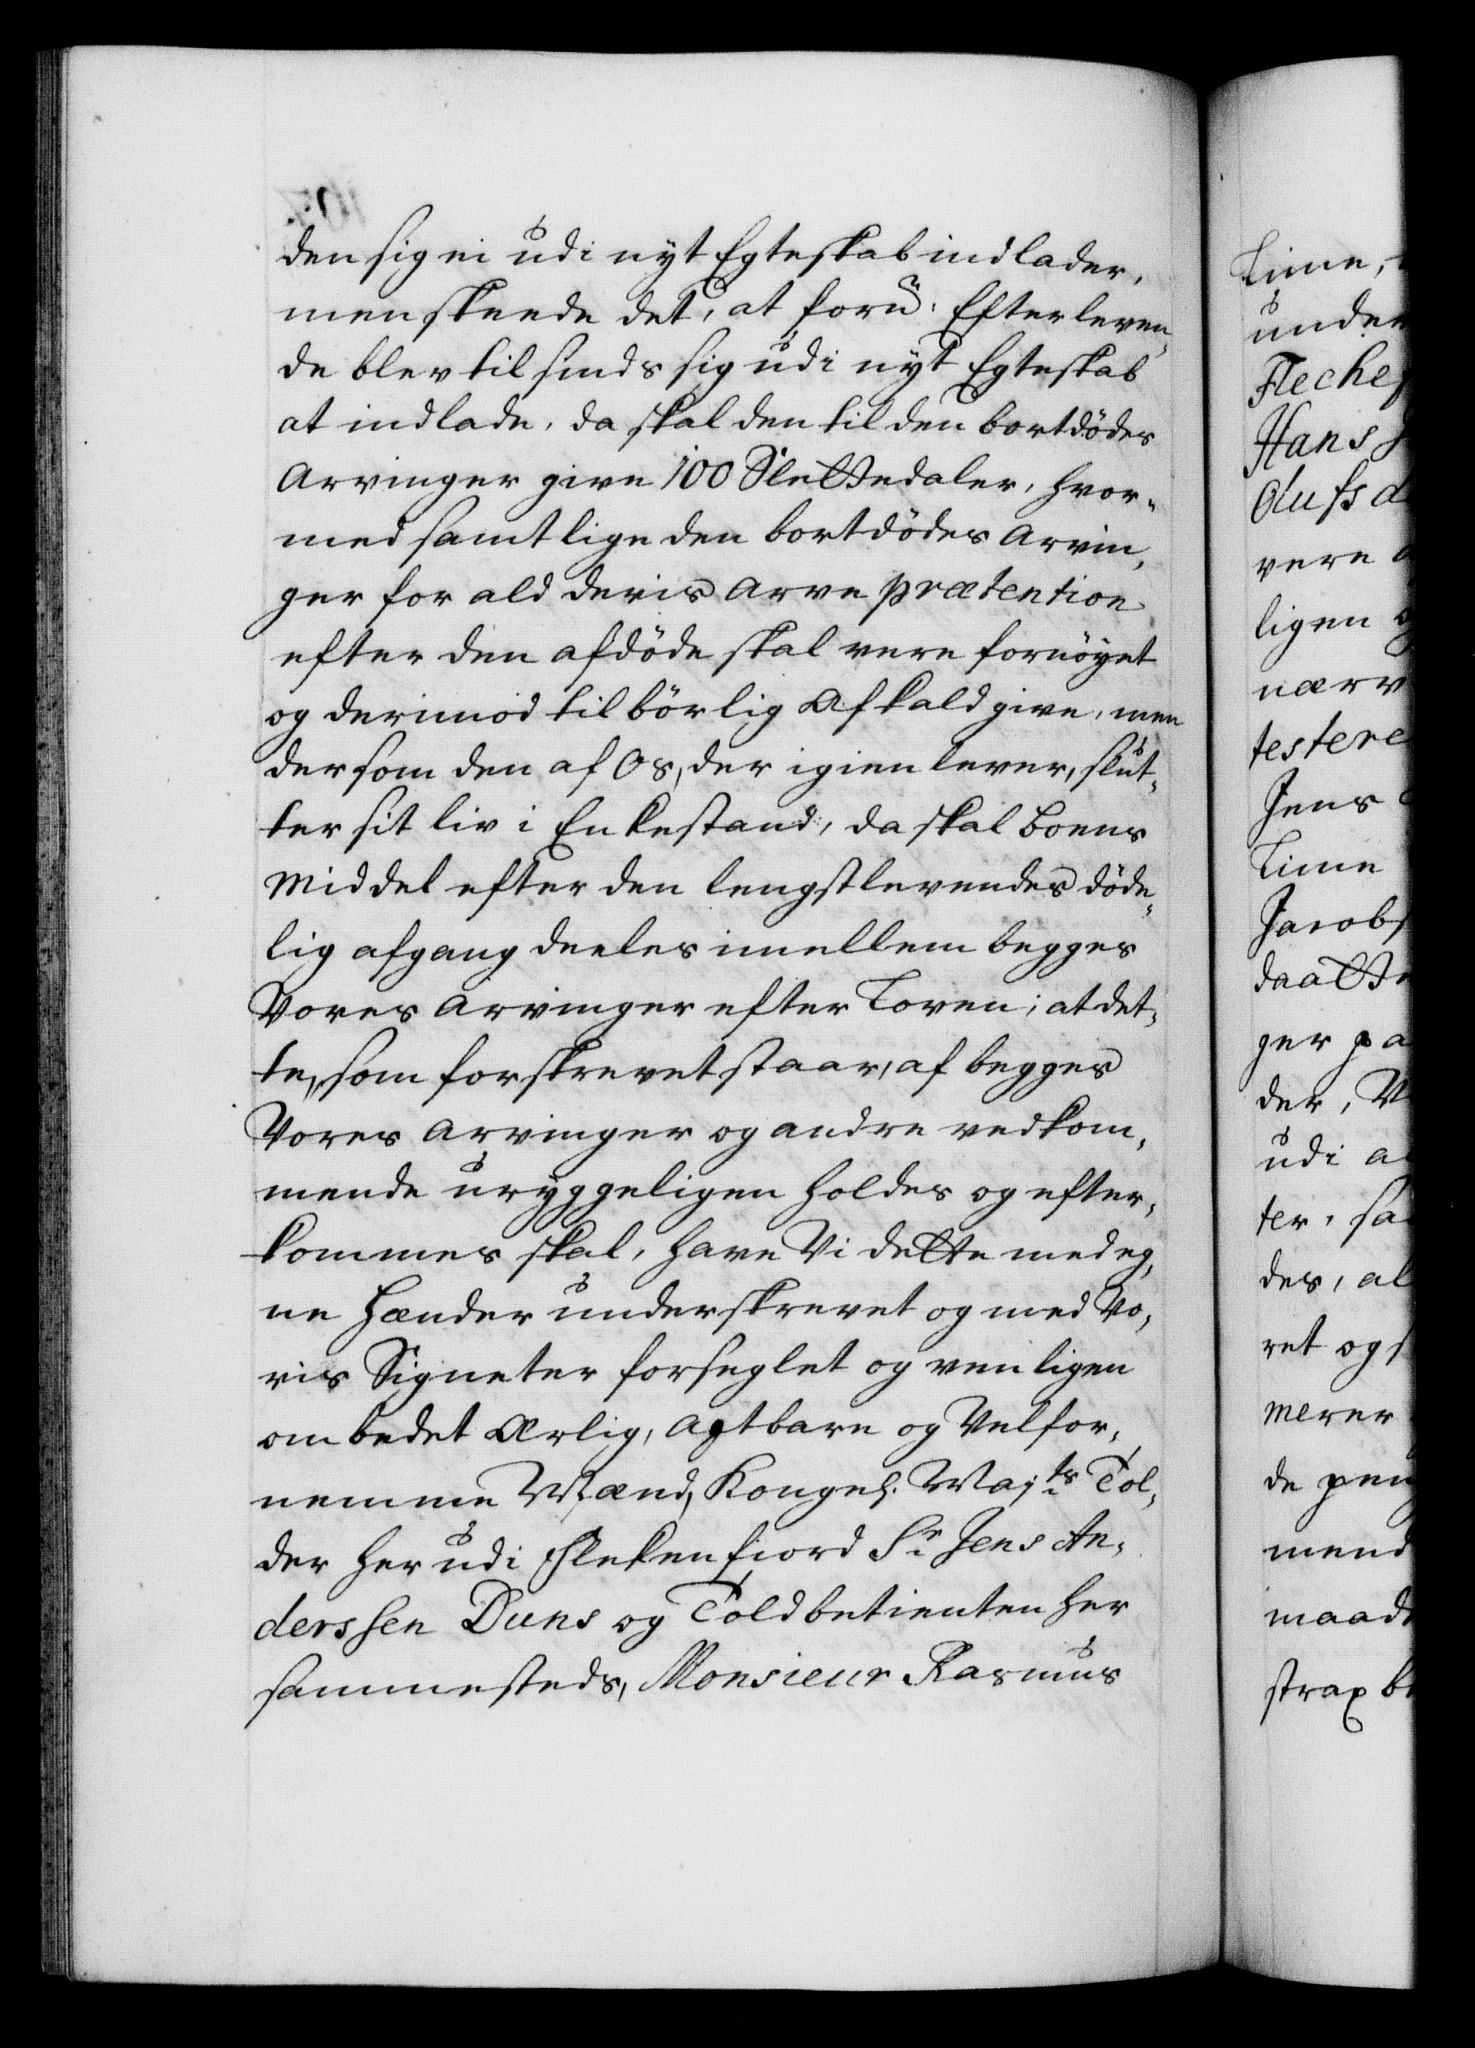 den sig ei udi nyt Egteskab indlader,
men skeede det, at foru: Efterleven¬
de blev til sinds sig udi nyt Egteskab
at indlade, da skal den til den bortdödes
Arvinger give 100 Slettedaler, hvor¬
med samtlige den bortdödes Arvin¬
ger for ald deris Arve prætention
efter den afdöde skal vere fornöyet
og derimod tilbörlig Afkald give, men
dersom den af Os, der igien lever, slut¬
ter sit liv i Enkestand, da skal boens
Middel efter den lengstlevendes döde¬
lig afgang deeles imellem begges
Vores Arvinger efter Loven; at det¬
te, som forskrevet staar, af begges
Vores Arvinger og andre vedkom¬
mende uryggeligen holdes og efter¬
kommes skal, have Vi dette med eg¬
ne Hænder underskrevet og med Vo¬
ris Signeter forseglet og venligen
ombedet Ærlig, Agtbare og Velfor¬
nemme Mænd, Kongel. Majts Tol¬
der her udi Flekkefiord Sr Jens An¬
derssen Duns og Toldbetienten her
sammesteds, Monsieur Rasmus
Lime,
under
Fleche
Hans
Olufsd
vere
ligen
nærv
testere
Jens
Lime
Jacobs
daatte
ger pa
der, V
udi a
ter, sa
des, al
ret og s
merer
de pen
mend
maad
strax be